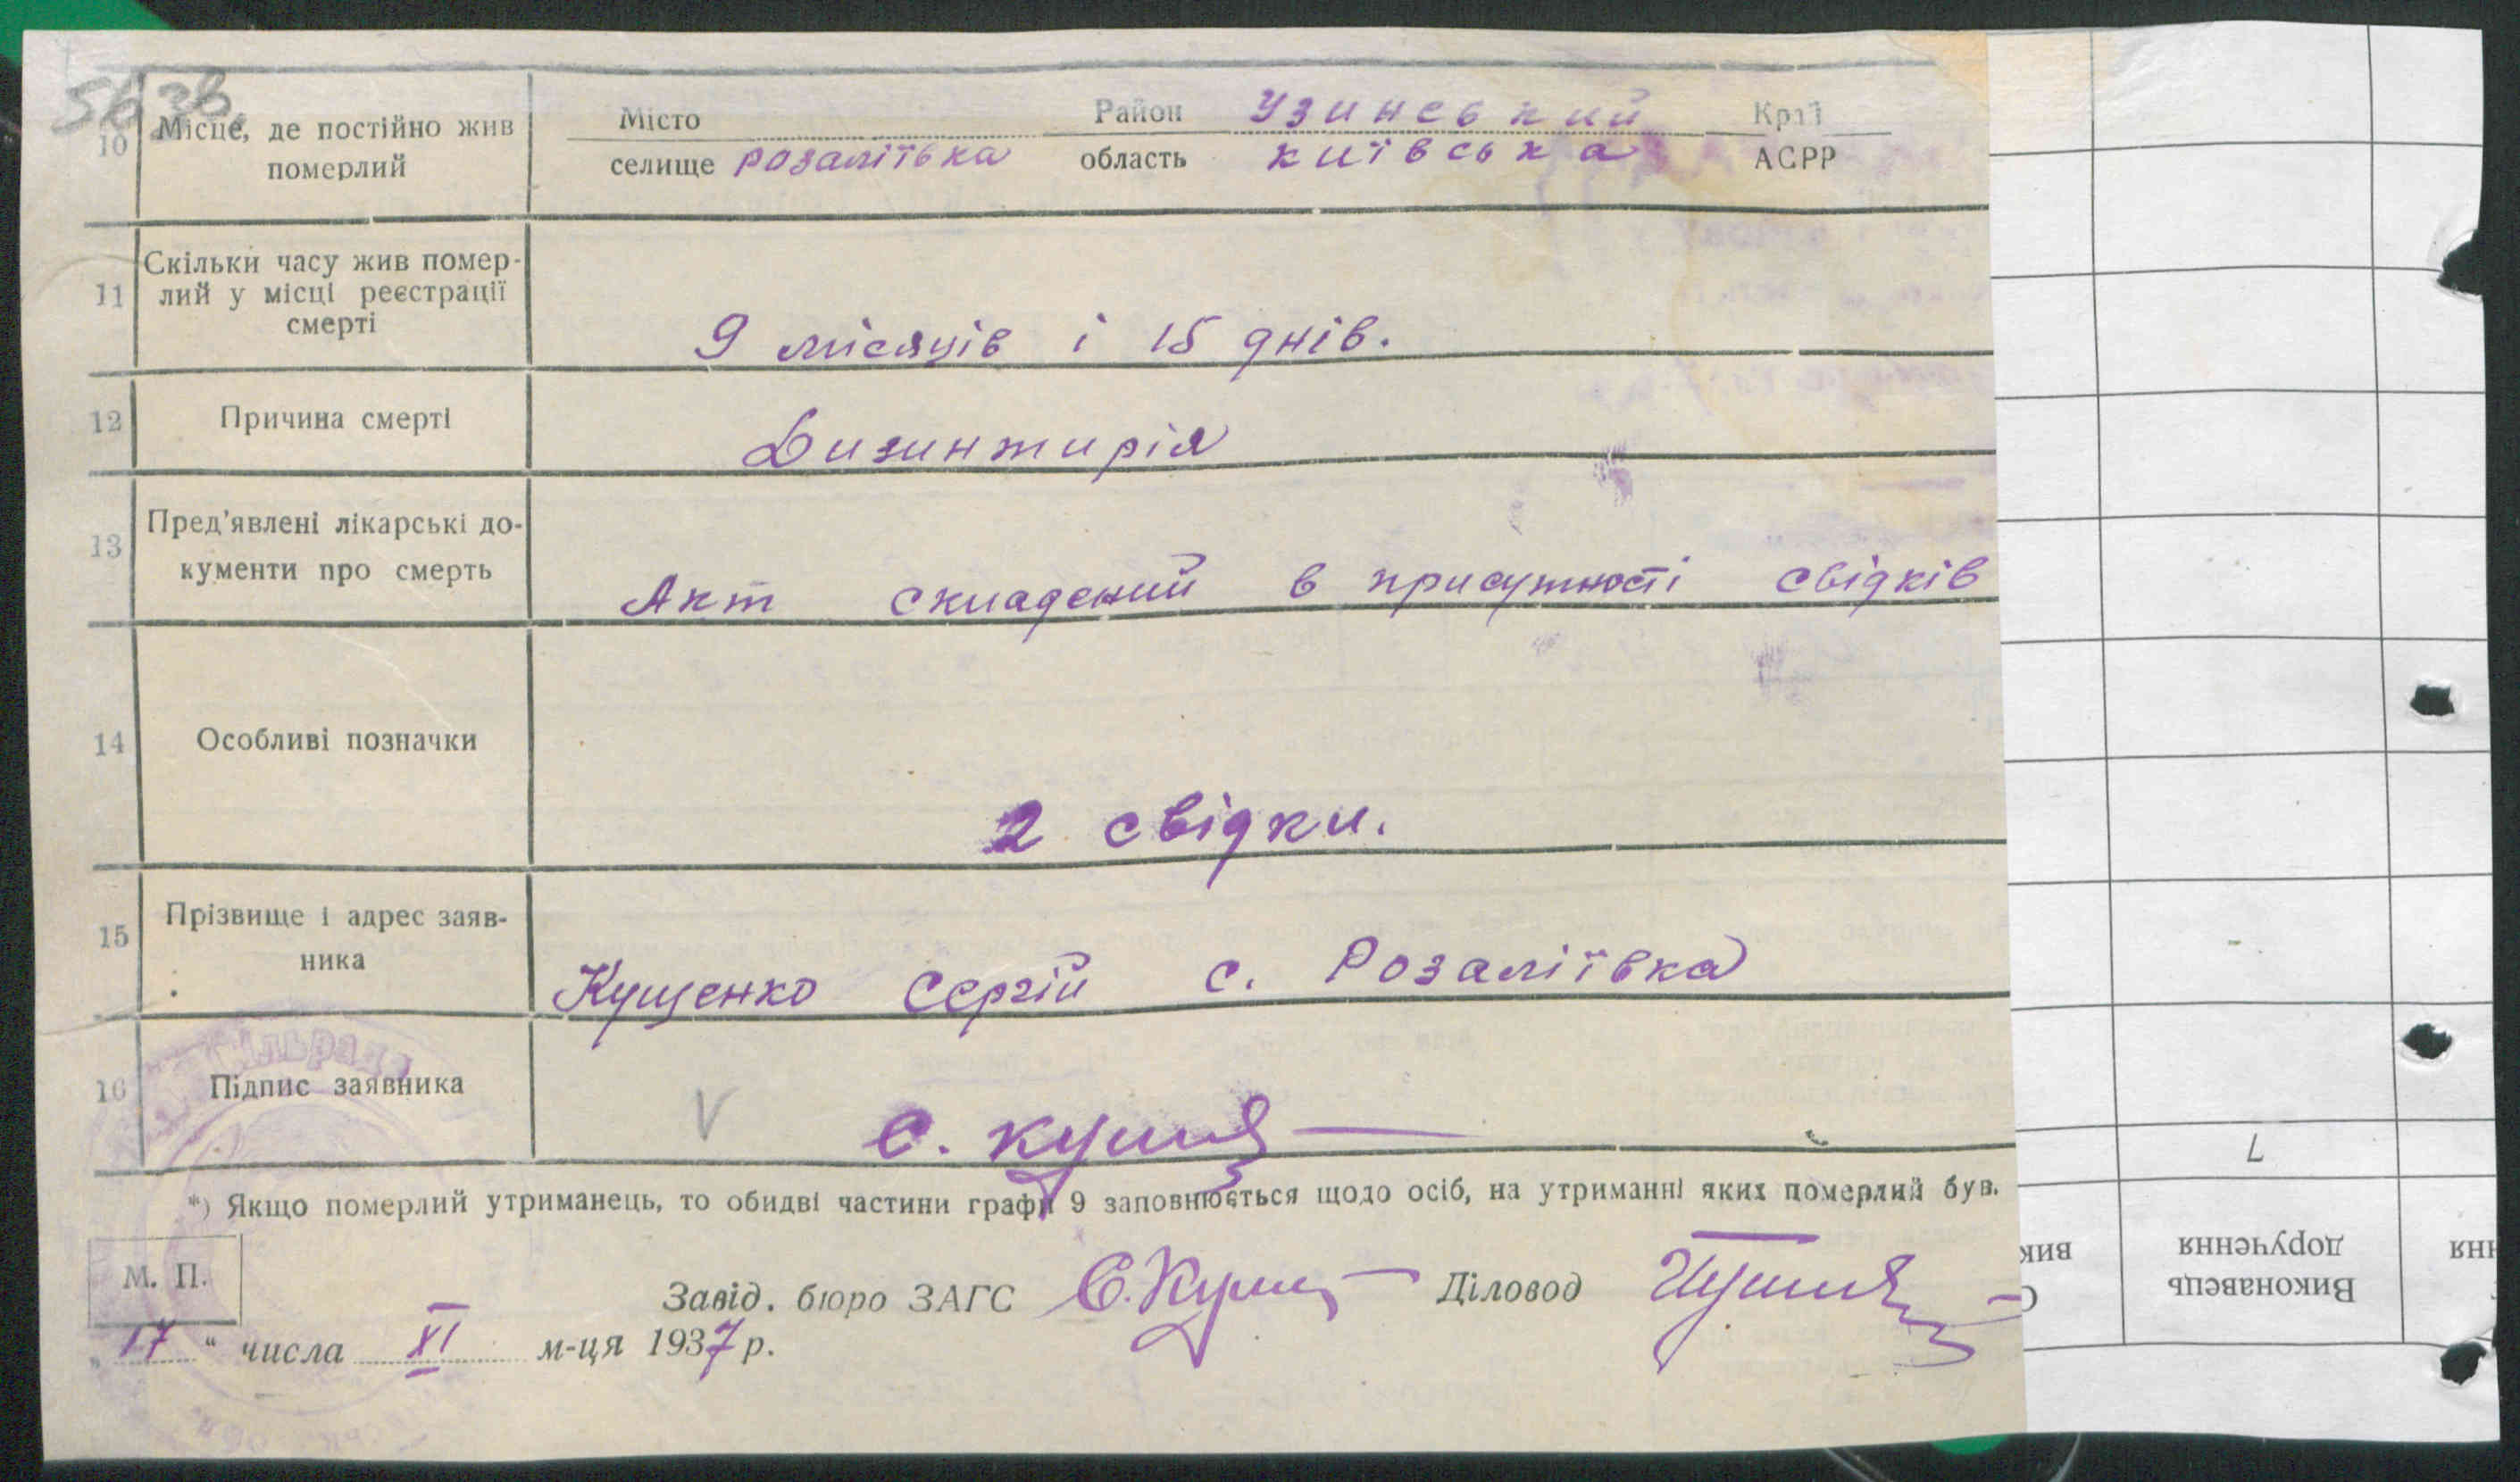 56зв.
10 Місце, де постійно жив померлий
Місто Район Узинський Край
селище Розаліївка область Київська АСРР
11 Скільки часу жив помер-
лий у місці реєстрації
смерті
9 місяців і 15 днів.
12 Причина смерті Дизинтирія
13 Пред'явлені лікарські до-
кументи про смерть
Акт складений в присутності свідків
14 Особливі позначки
2 свідки.
15 Прізвище і адрес заяв-
ника
Кущенко Сергій с. Розаліївка
16 Підпис заявника
V С.
*) Якщо померлий утриманець, то обидві частини графи 9 заповнюється щодо осіб, на утриманні яких померлий був.
М. П.
Завід. бюро ЗАГС Діловод
„17“ числа XI м-ця 1937 р.
сільрада
Виконавець
доручення
вик
ння